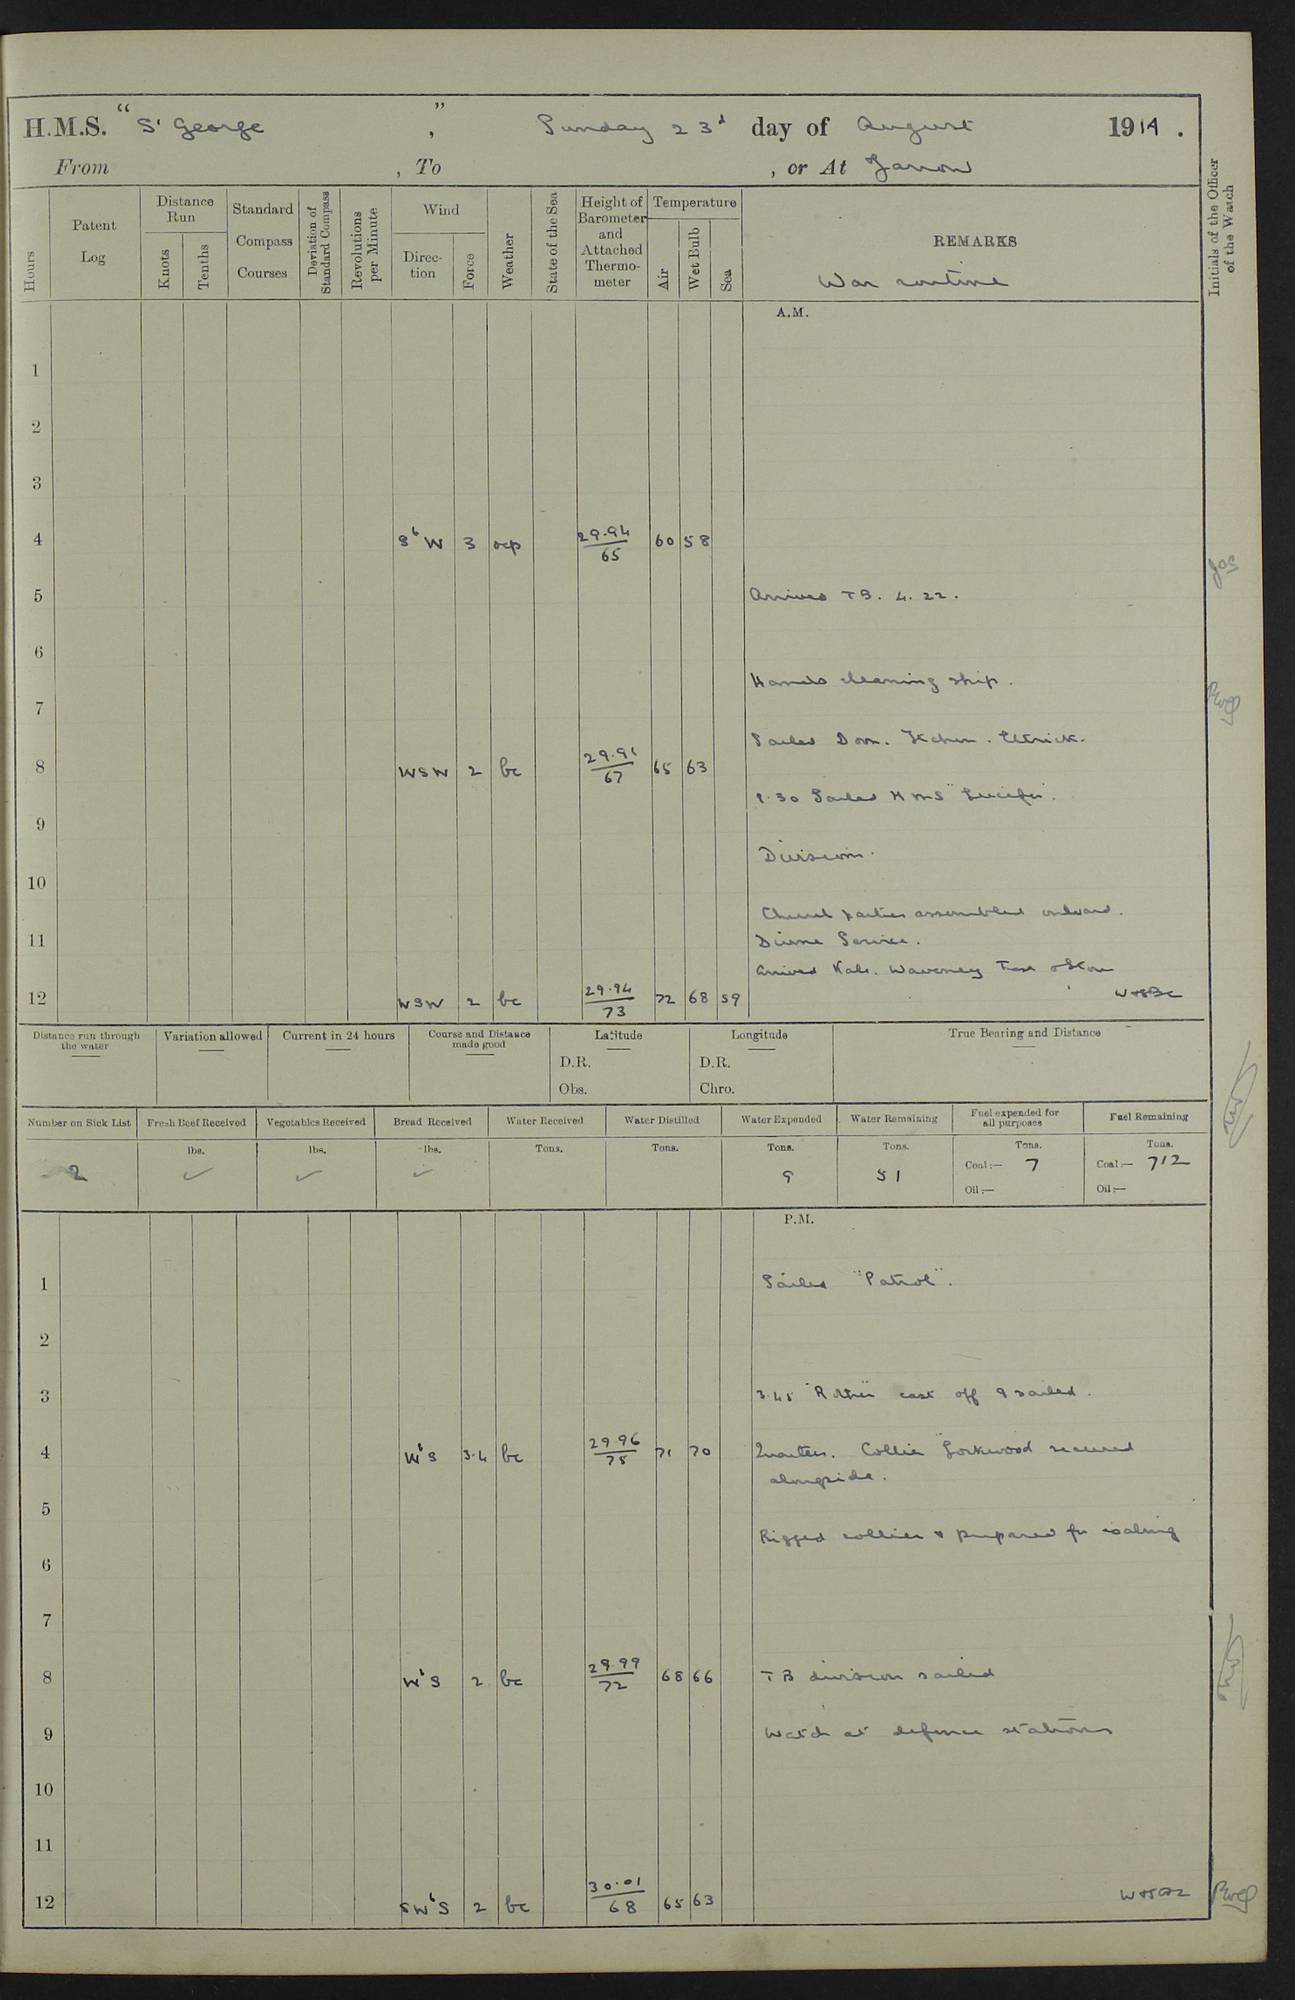 H.M.S. "St George", Sunday 23d day of August 1914.
From , To , or At Jarrow
Hours
Patent Log
Distance Run
Knots
Tenths
Standard Compass Courses
Deviation of Standard Compass
Revolutions per Minute
Wind
Direction
Force
Weather
State of the Sea
Height of Barometer and Attached Thermometer
Temperature
Air
Wet Bulb
Sea
REMARKS
War routine
Initials of the Officer of the Watch
A.M.
1
2
3
4 SbW 3 ocp 29.94/65 60 58
5 Arrived TB. 4. 22.
6
Hands cleaning ship.
7
Sailed Doon. Itchen. Ettrick.
8 WSW 2 bc 29.91/67 65 63
8.30 Sailed HMS "Lucifer".
9
Divisions.
10
Church parties assembled onboard.
11 Divine Service.
Arrived Kale. Waveney Test
12 WSW 2 bc 29.94/73 72 68 59
Distance run through the water
Variation allowed
Current in 24 hours
Course and Distance made good
Latitude
D.R.
Obs.
Longitude
D.R.
Chro.
True Bearing and Distance
Number on Sick List
Fresh Beef Received
Vegetables Received
Bread Received
Water Received
Water Distilled
Water Expended
Water Remaining
Fuel expended for all purposes
Fuel Remaining
2
lbs. ✓
lbs. ✓
lbs. ✓
Tons.
Tons.
Tons. 9
Tons. 51
Tons. Coal:— 7 Oil:—
Tons. Coal:— 712 Oil:—
P.M.
1 Sailed "Patrol".
2
3 3.45 "Rother" cast off & sailed.
4 WbS 3.4 bc 29.96/75 71 70 Quarters. Collier Lockwood secured
alongside.
5
Rigged collier & prepared for coaling
6
7
8 WbS 2 bc 29.99/72 68 66 TB division sailed
9 Watch at defence stations
10
11
12 SWbS 2 bc 30.01/68 65 63